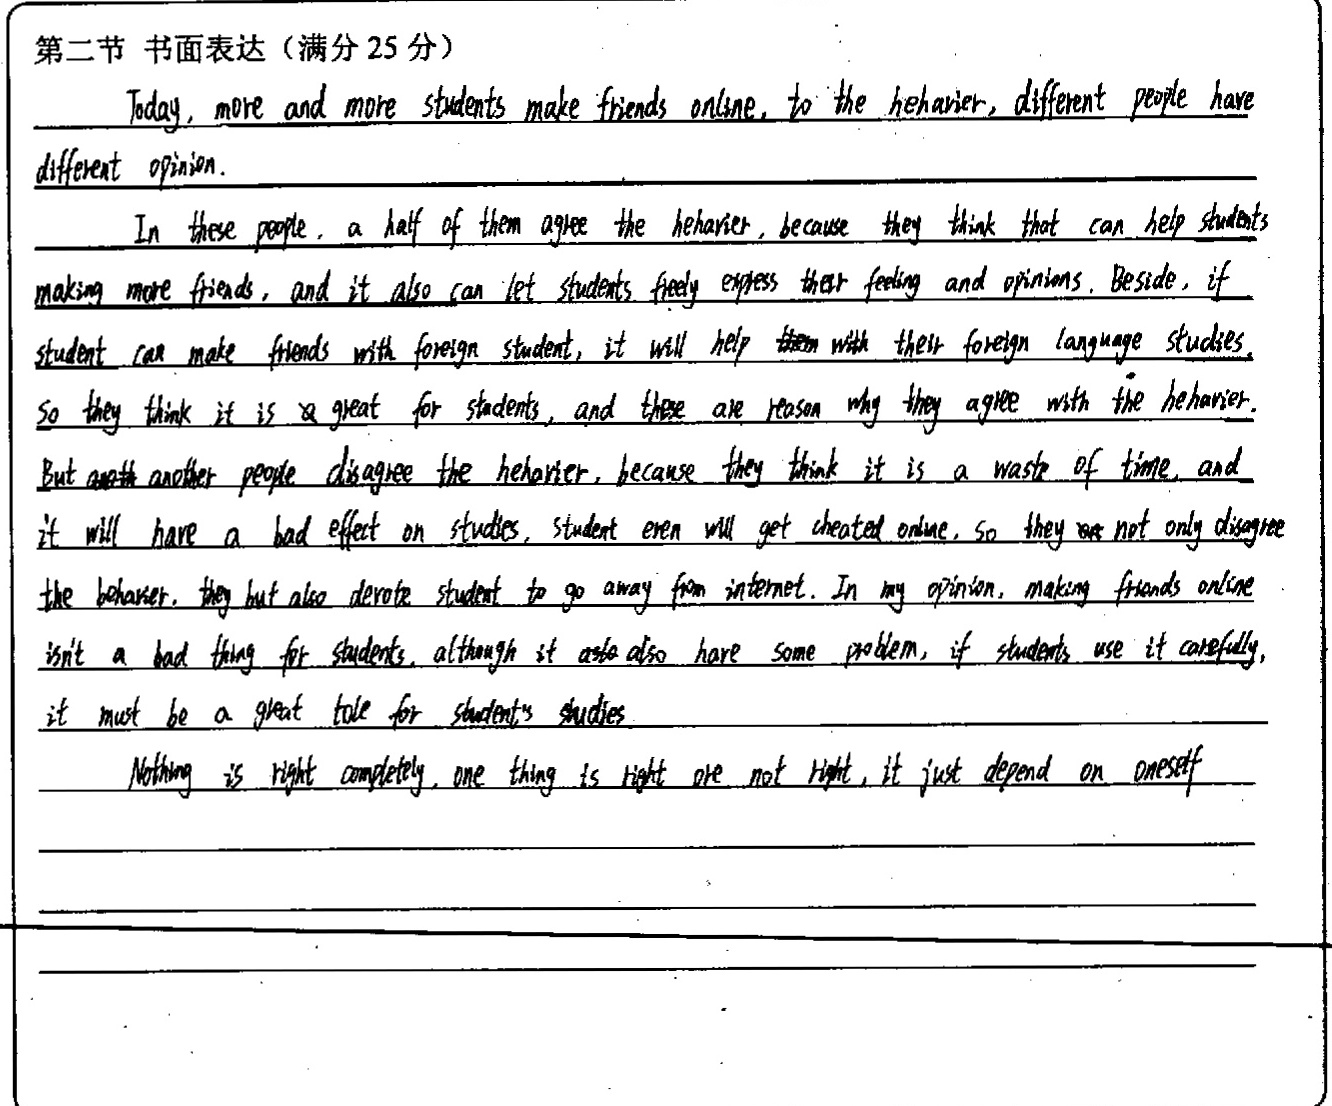 第二节 书面表达（满分 25 分）
Today, more and more students make friends online, to the hehavier, different people have
different opinion.
In these people, a half of them agree the hehavier, because they think that can help students
making more friends, and it also can let students freely express their feeling and opinions. Beside, if
student can make friends with foreign student, it will help with their foreign language studies.
So they think it is great for students, and these are reason why they agree with the hehavier.
But another people disagree the hehavier, because they think it is a waste of time, and
it will have a bad effect on studies, student even will get cheated online, so they not only disagree
the behavier, they but also devote student to go away from internet. In my opinion, making friends online
isn't a bad thing for students, although it also have some problem, if students use it carefully,
it must be a great tole for student's studies
Nothing is right completely, one thing is right ore not right, it just depend on oneself